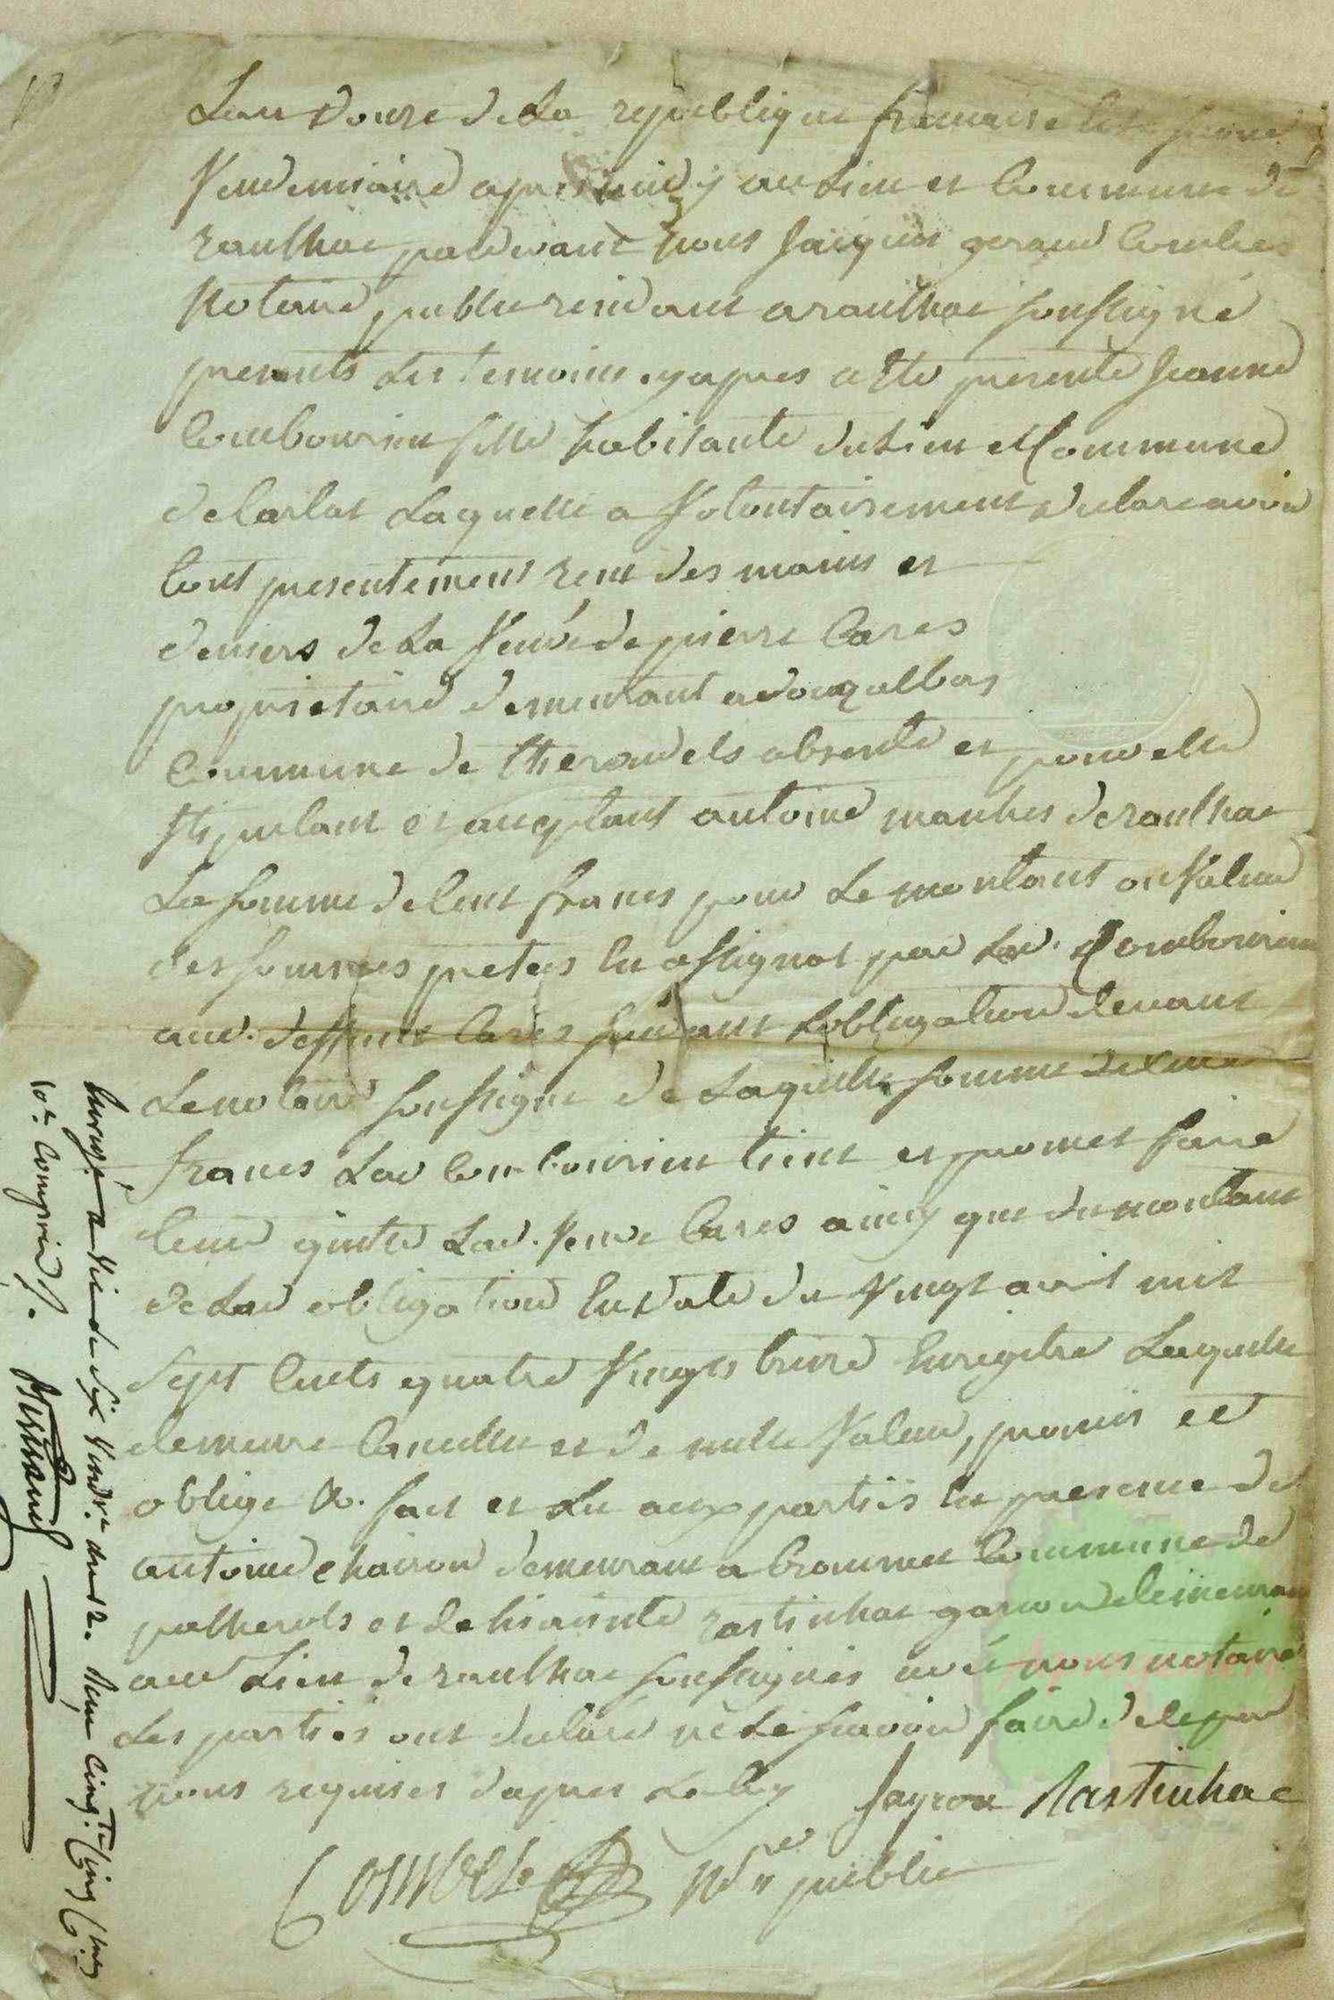 Lan douze de la republique francaise le
Vendemiaire apres midy au lieu et Commune de
raulhac pardevant nous Jacques geraud Combes
Notaire public residant a raulhac soussigné
presents les temoins cyapres a été presente Jeanne
Combourieu fille habitante du lieu et Commune
de Carlat Laquelle a Volontairement declare avoir
tout presentement reçu des mains et
deniers de la Veuve de pierre Cares
proprietaire demeurant a
Commune de therondels absente et pour elle
stipulant et acceptant antoine manhes de raulhac
La somme de Cent francs pour Le montant ou Valeur
des sommes pretees En assignat par Lad. Combourieu
aud. deffunt Cares suivant Lobligation devant
Le notaire soussigné de Laquelle somme de Cent
francs Lad Combourieu tient et promet faire
tenir quitte Lad. Veuve Cares ainsy que du montant
de Lad obligation En date du Vingt avril mil
Sept Cents quatre Vingts treize Enregistré Laquelle
demeure Cancellee et de nulle Valeur, promis et
oblige &. fait et Lu aux parties En presence de
antoine chairou demeurant a bromes Commune de
palherols et de hiacinte rastinhac garcon demeurant
au Lieu de raulhac soussignes avec nous notaire
Les parties ont declaré ne Le savoir faire de ce par
nous requises dapres La Loy Jayrou Rastinhac
Combes Nore public
Enregé. a Vic le dix Vendre. an 12. Reçu
10e. Compris /.